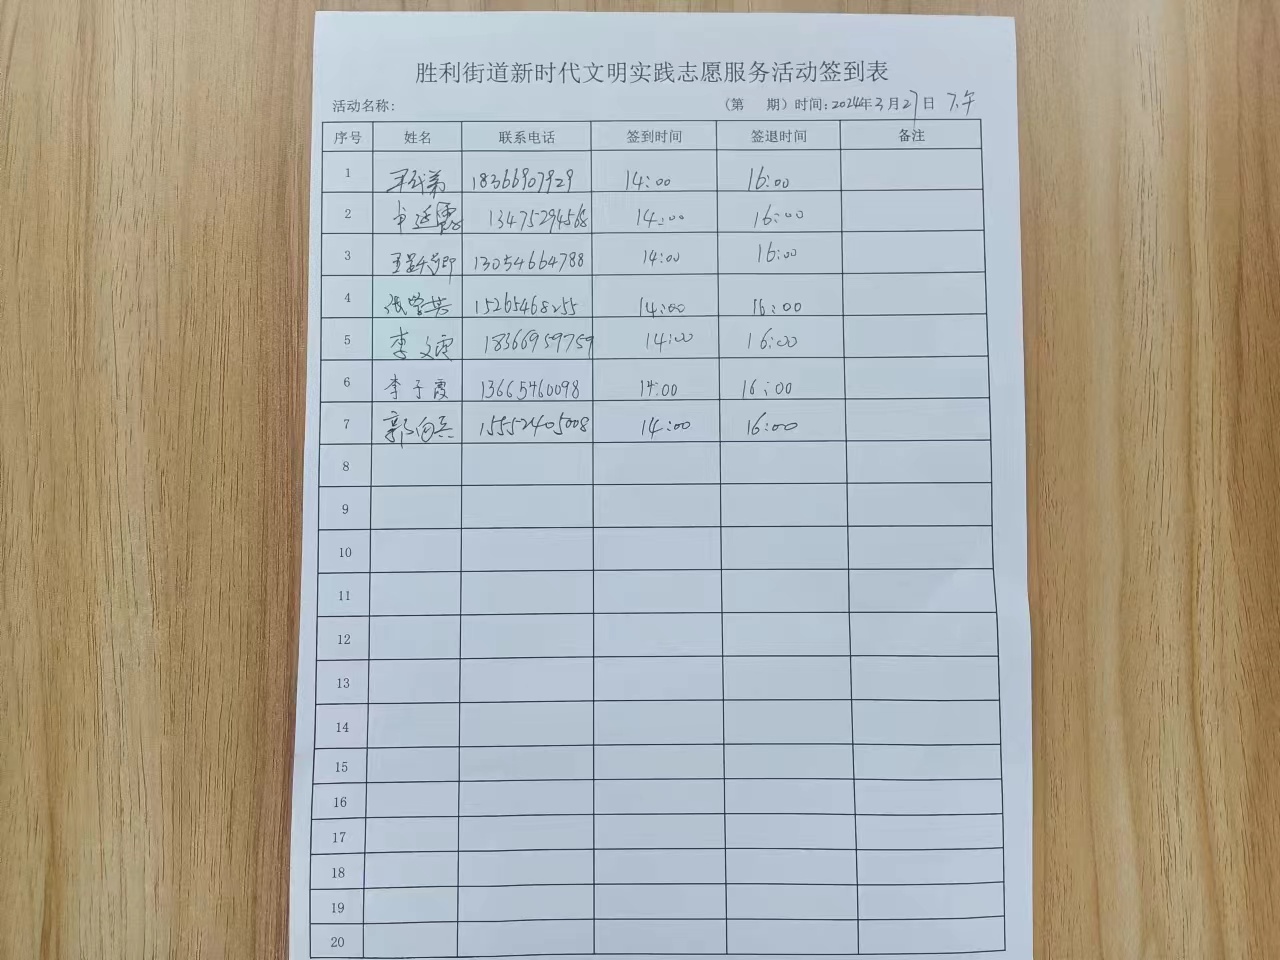 胜利街道新时代文明实践志愿服务活动签到表
活动名称: (第 期) 时间: 2024年3月27日 下午
序号 姓名 联系电话 签到时间 签退时间 备注
1 18366907929 14:00 16:00
2 13475294568 14:00 16:00
3 13054664788 14:00 16:00
4 15265468255 14:00 16:00
5 李文霞 18366959759 14:00 16:00
6 李子霞 13665460098 14:00 16:00
7 郭向兵 15552405008 14:00 16:00
8
9
10
11
12
13
14
15
16
17
18
19
20